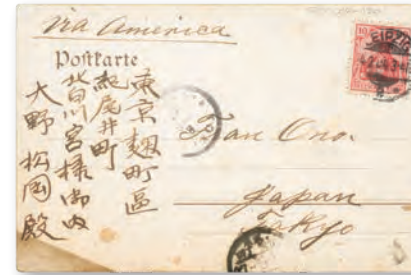 via America
Postkarte
東京麹町區
紀尾井町
北白川宮様御内
大野 松岡殿
Ono.
Japan
Tokyo
10